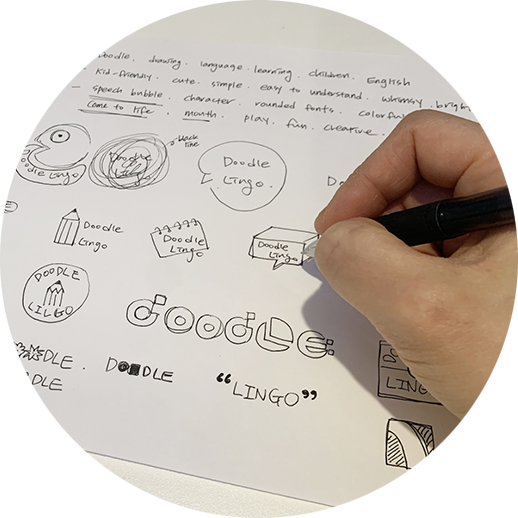 Doodle. drawing. language. learning. children. English
Kid-friendly. cute. simple. easy to understand. whimsy. bright
- speech bubble. character. rounded fonts. colorful
come to life, mouth. play. fun. creative.
black line
Doodle Lingo
Doodle Lingo
Doodle
Lingo.
Doodle
Lingo
Doodle
Lingo
Doodle
Lingo
DOODLE
LILGO
dOODLE
DOODLE
“LINGO”
LINGO